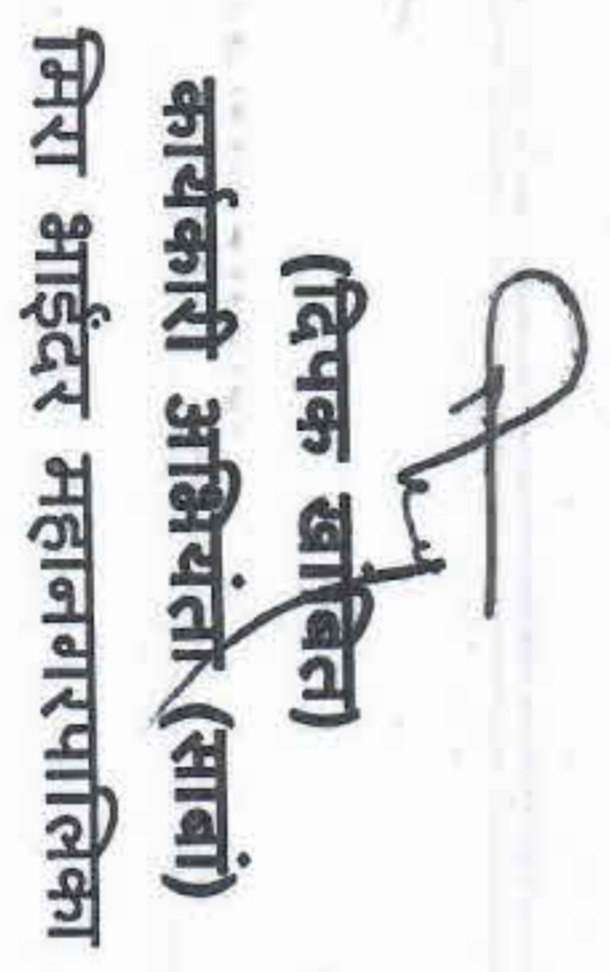 (दिपक खांबित)
कार्यकारी अभियंता (साबां)
मिरा भाईंदर महानगरपालिका